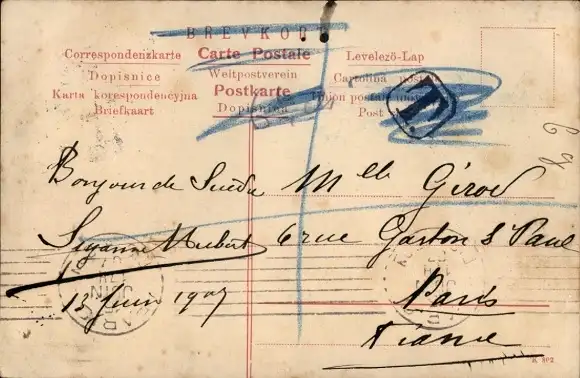 BREVKORT
Correspondenzkarte Carte Postale Levelező-Lap
Dopisnice Weltpostverein Cartolina postale
Karta korespondencyjna Postkarte Union postale
Briefkaart Dopisnica Post
T
Bonjour de Suède Mlle Girod
Suzanne Hubert 6 rue Gaston St Paul
13 Juin 1907 Paris
France
PARIS